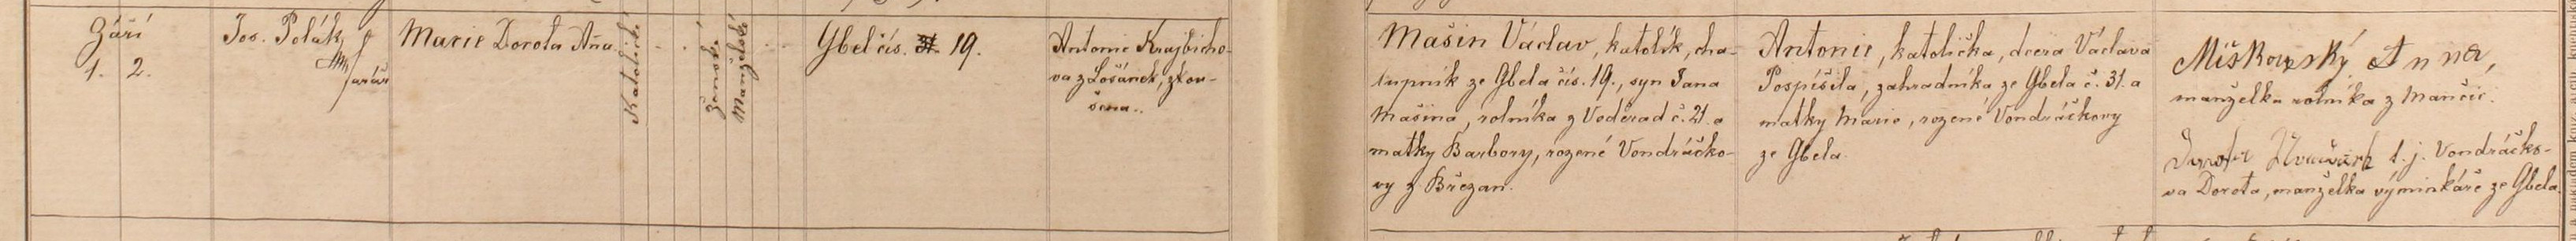 Září
1. 2.
Jos. Polák
farář
Marie Dorota Aňa
Katolické
ženské
Manželské
Gbel čís. 31. 19.
Antonie Krajbicho-
va z Lošánek, zkou-
šena..
Mašin Václav, katolík, cha-
lupník ze Gbela čís. 19., syn Jana
Mašina, rolníka z Voděrad č. 21. a
matky Barbory, rozené Vondráčko-
vy z Březan.
Antonie, katolička, dcera Václava
Pospíšila, zahradníka ze Gbela č. 31. a
matky Marie, rozené Vondráčkovy
ze Gbela.
Miškovský Anna,
manželka rolníka z Mančic.
t. j. Vondráčko-
va Dorota, manželka výminkáře ze Gbela